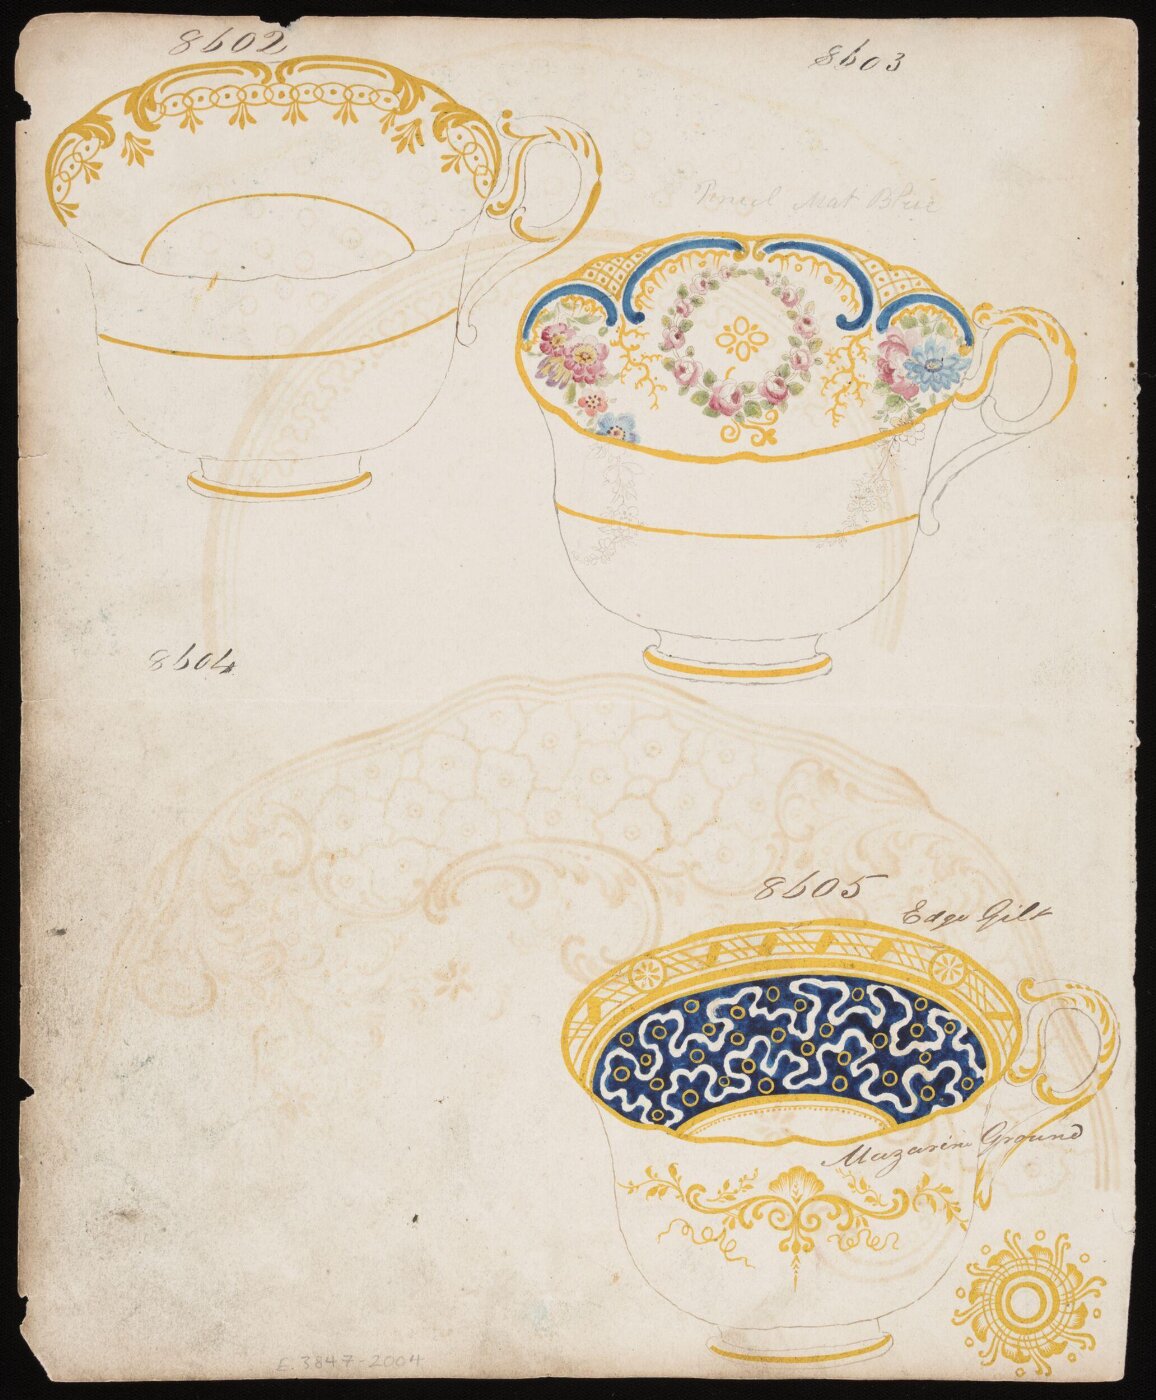 8602
8603
Pencil Mat Blue
8604
8605
Edge Gilt
Mazarine Ground
E.3847-2004